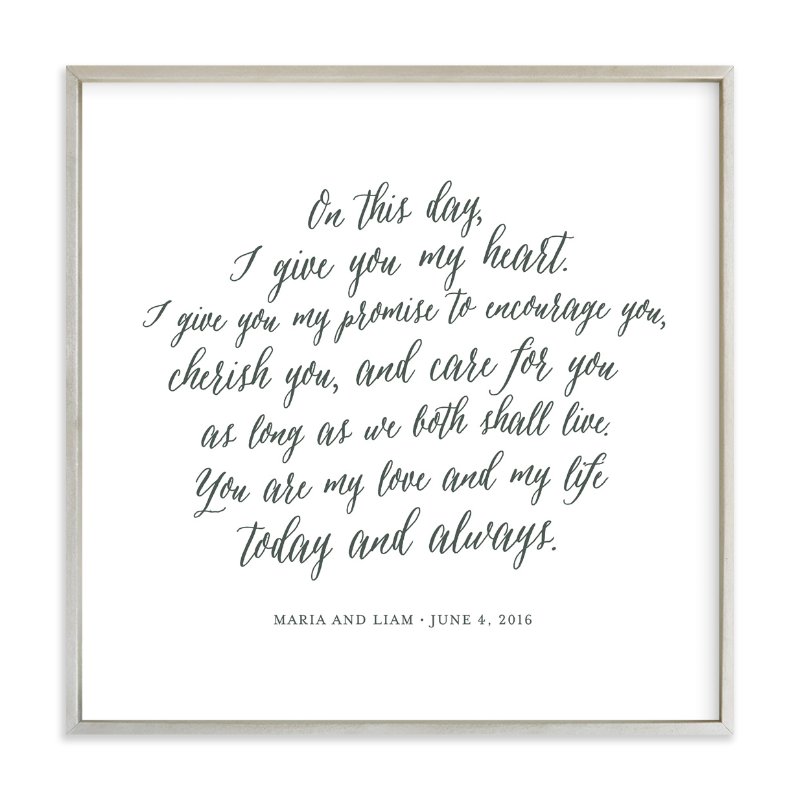 On this day,
I give you my heart.
I give you my promise to encourage you,
cherish you, and care for you
as long as we both shall live.
You are my love and my life
today and always.
MARIA AND LIAM • JUNE 4, 2016